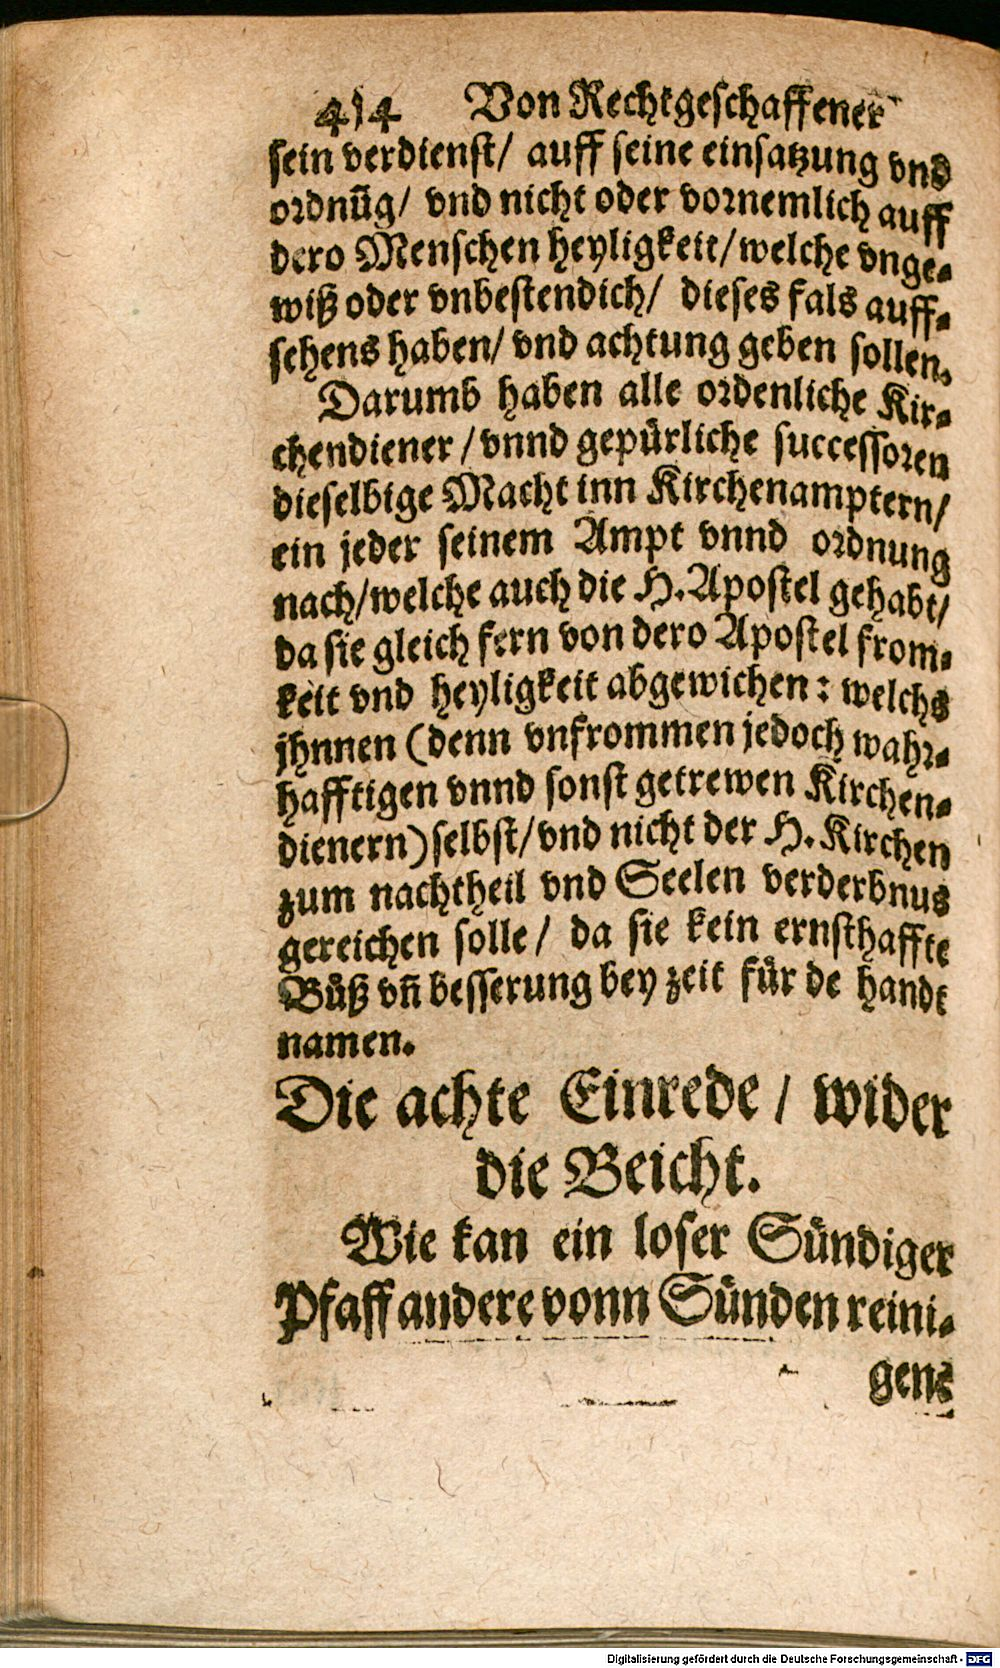 414 Von Rechtgeschaffener
sein verdienst/ auff seine einsatzung vnd
ordnūg/ vnd nicht oder vornemlich auff
dero Menschen heyligkeit/welche vnge-
wiß oder vnbestendich/ dieses fals auff-
sehens haben/ vnd achtung geben sollen.
Darumb haben alle ordenliche Kir-
chendiener /vnnd gepürliche successoren
dieselbige Macht inn Kirchenamptern/
ein jeder seinem Ampt vnnd ordnung
nach/welche auch die H. Apostel gehabt/
da sie gleich fern von dero Apostel from-
keit vnd heyligkeit abgewichen: welchs
jhnnen (denn vnfrommen jedoch wahr-
hafftigen vnnd sonst getrewen Kirchen-
dienern) selbst/vnd nicht der H. Kirchen
zum nachtheil vnd Seelen verderbnus
gereichen solle/ da sie kein ernsthaffte
Bůß vn̄ besserung bey zeit für de handt
namen.
Die achte Einrede/ wider
die Beicht.
Wie kan ein loser Sündiger
Pfaff andere vonn Sünden reini-
gens
Digitalisierung gefördert durch die Deutsche Forschungsgemeinschaft - DFG